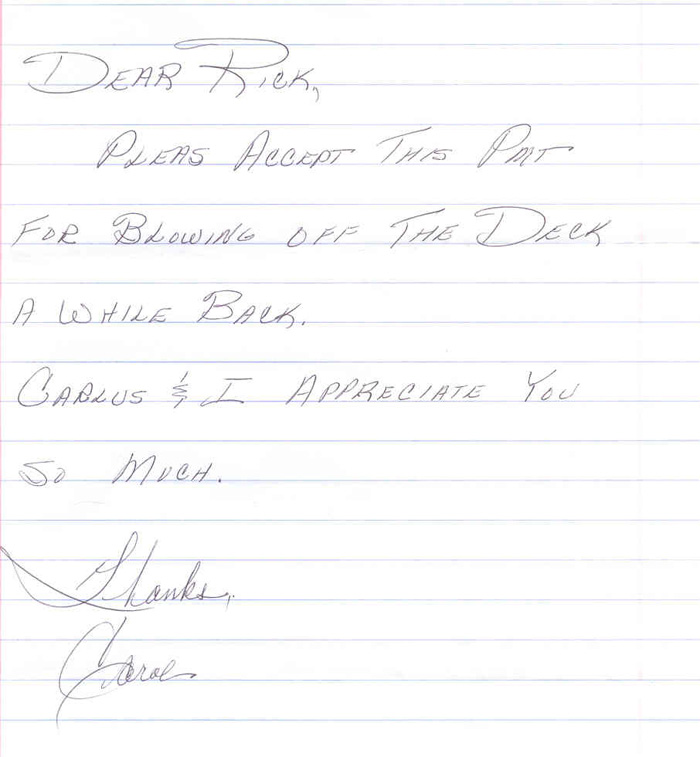 DEAR RICK,
PLEAS ACCEPT THIS PMT
FOR BLOWING OFF THE DECK
A WHILE BACK.
CARLUS & I APPRECIATE YOU
SO MUCH.
Thanks,
Carol